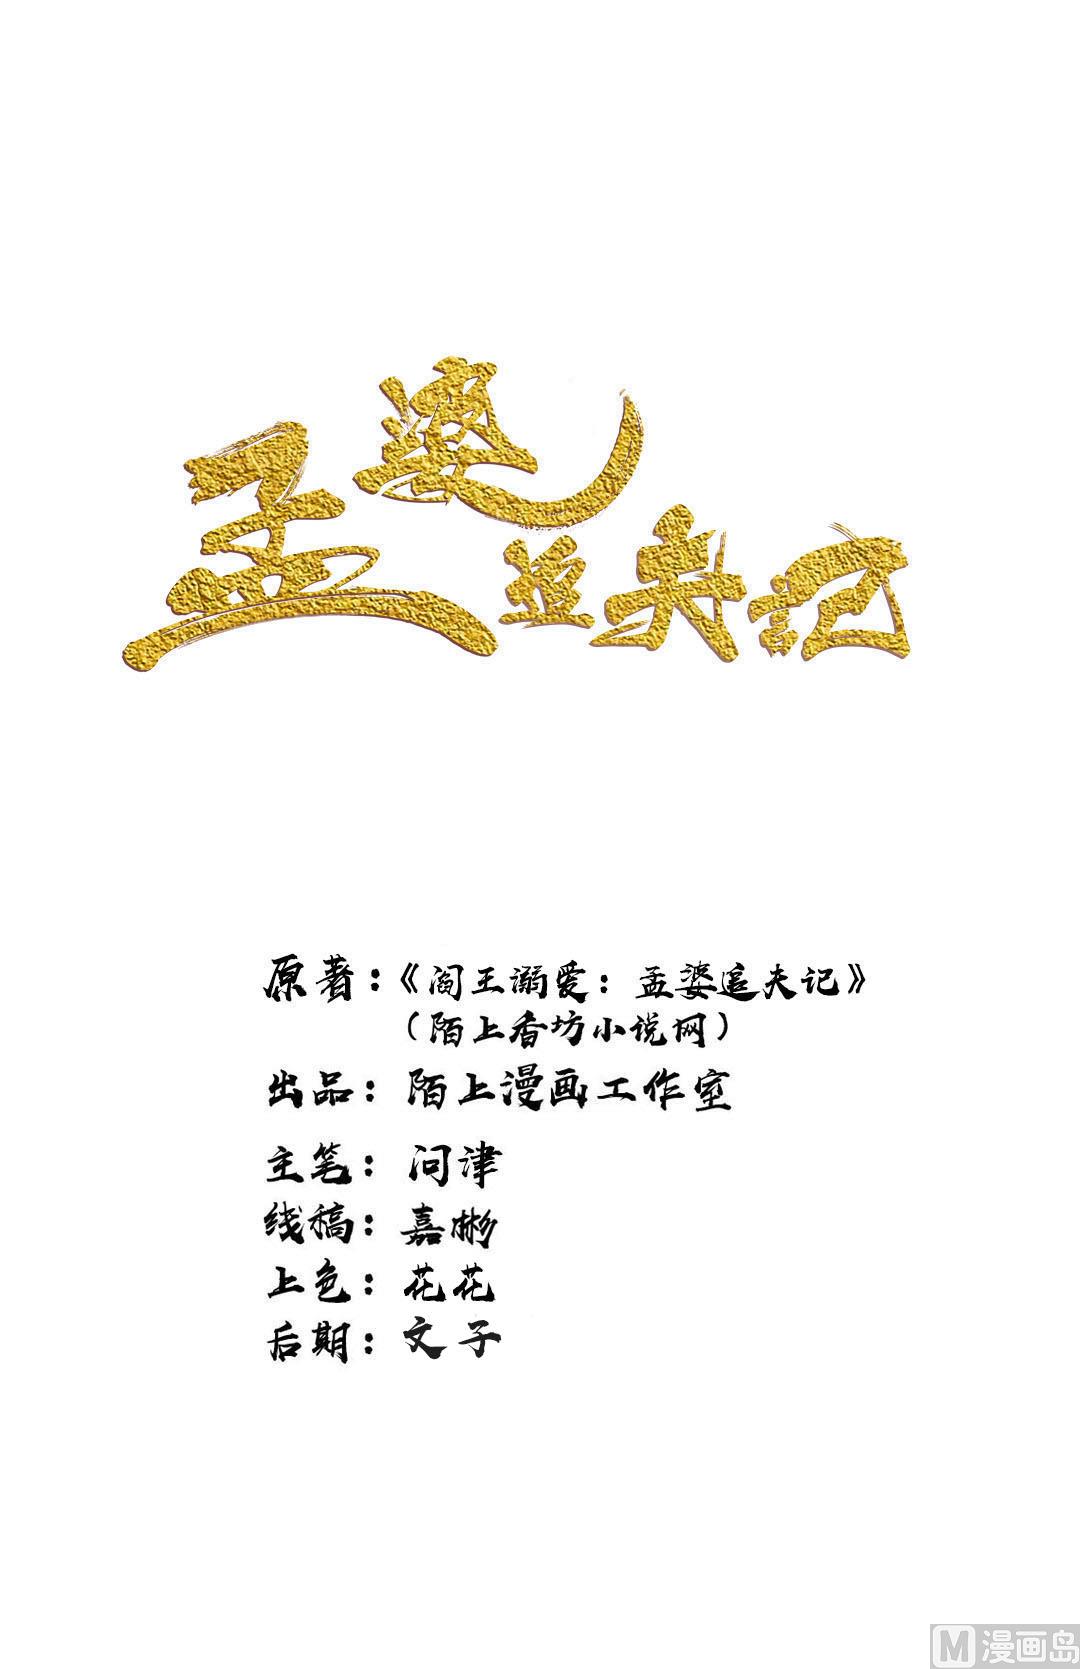 孟婆追夫记
原著：《阎王溺爱：孟婆追夫记》
（陌上香坊小说网）
出品：陌上漫画工作室
主笔：问津
线稿：嘉彬
上色：花花
后期：文子
M漫画岛